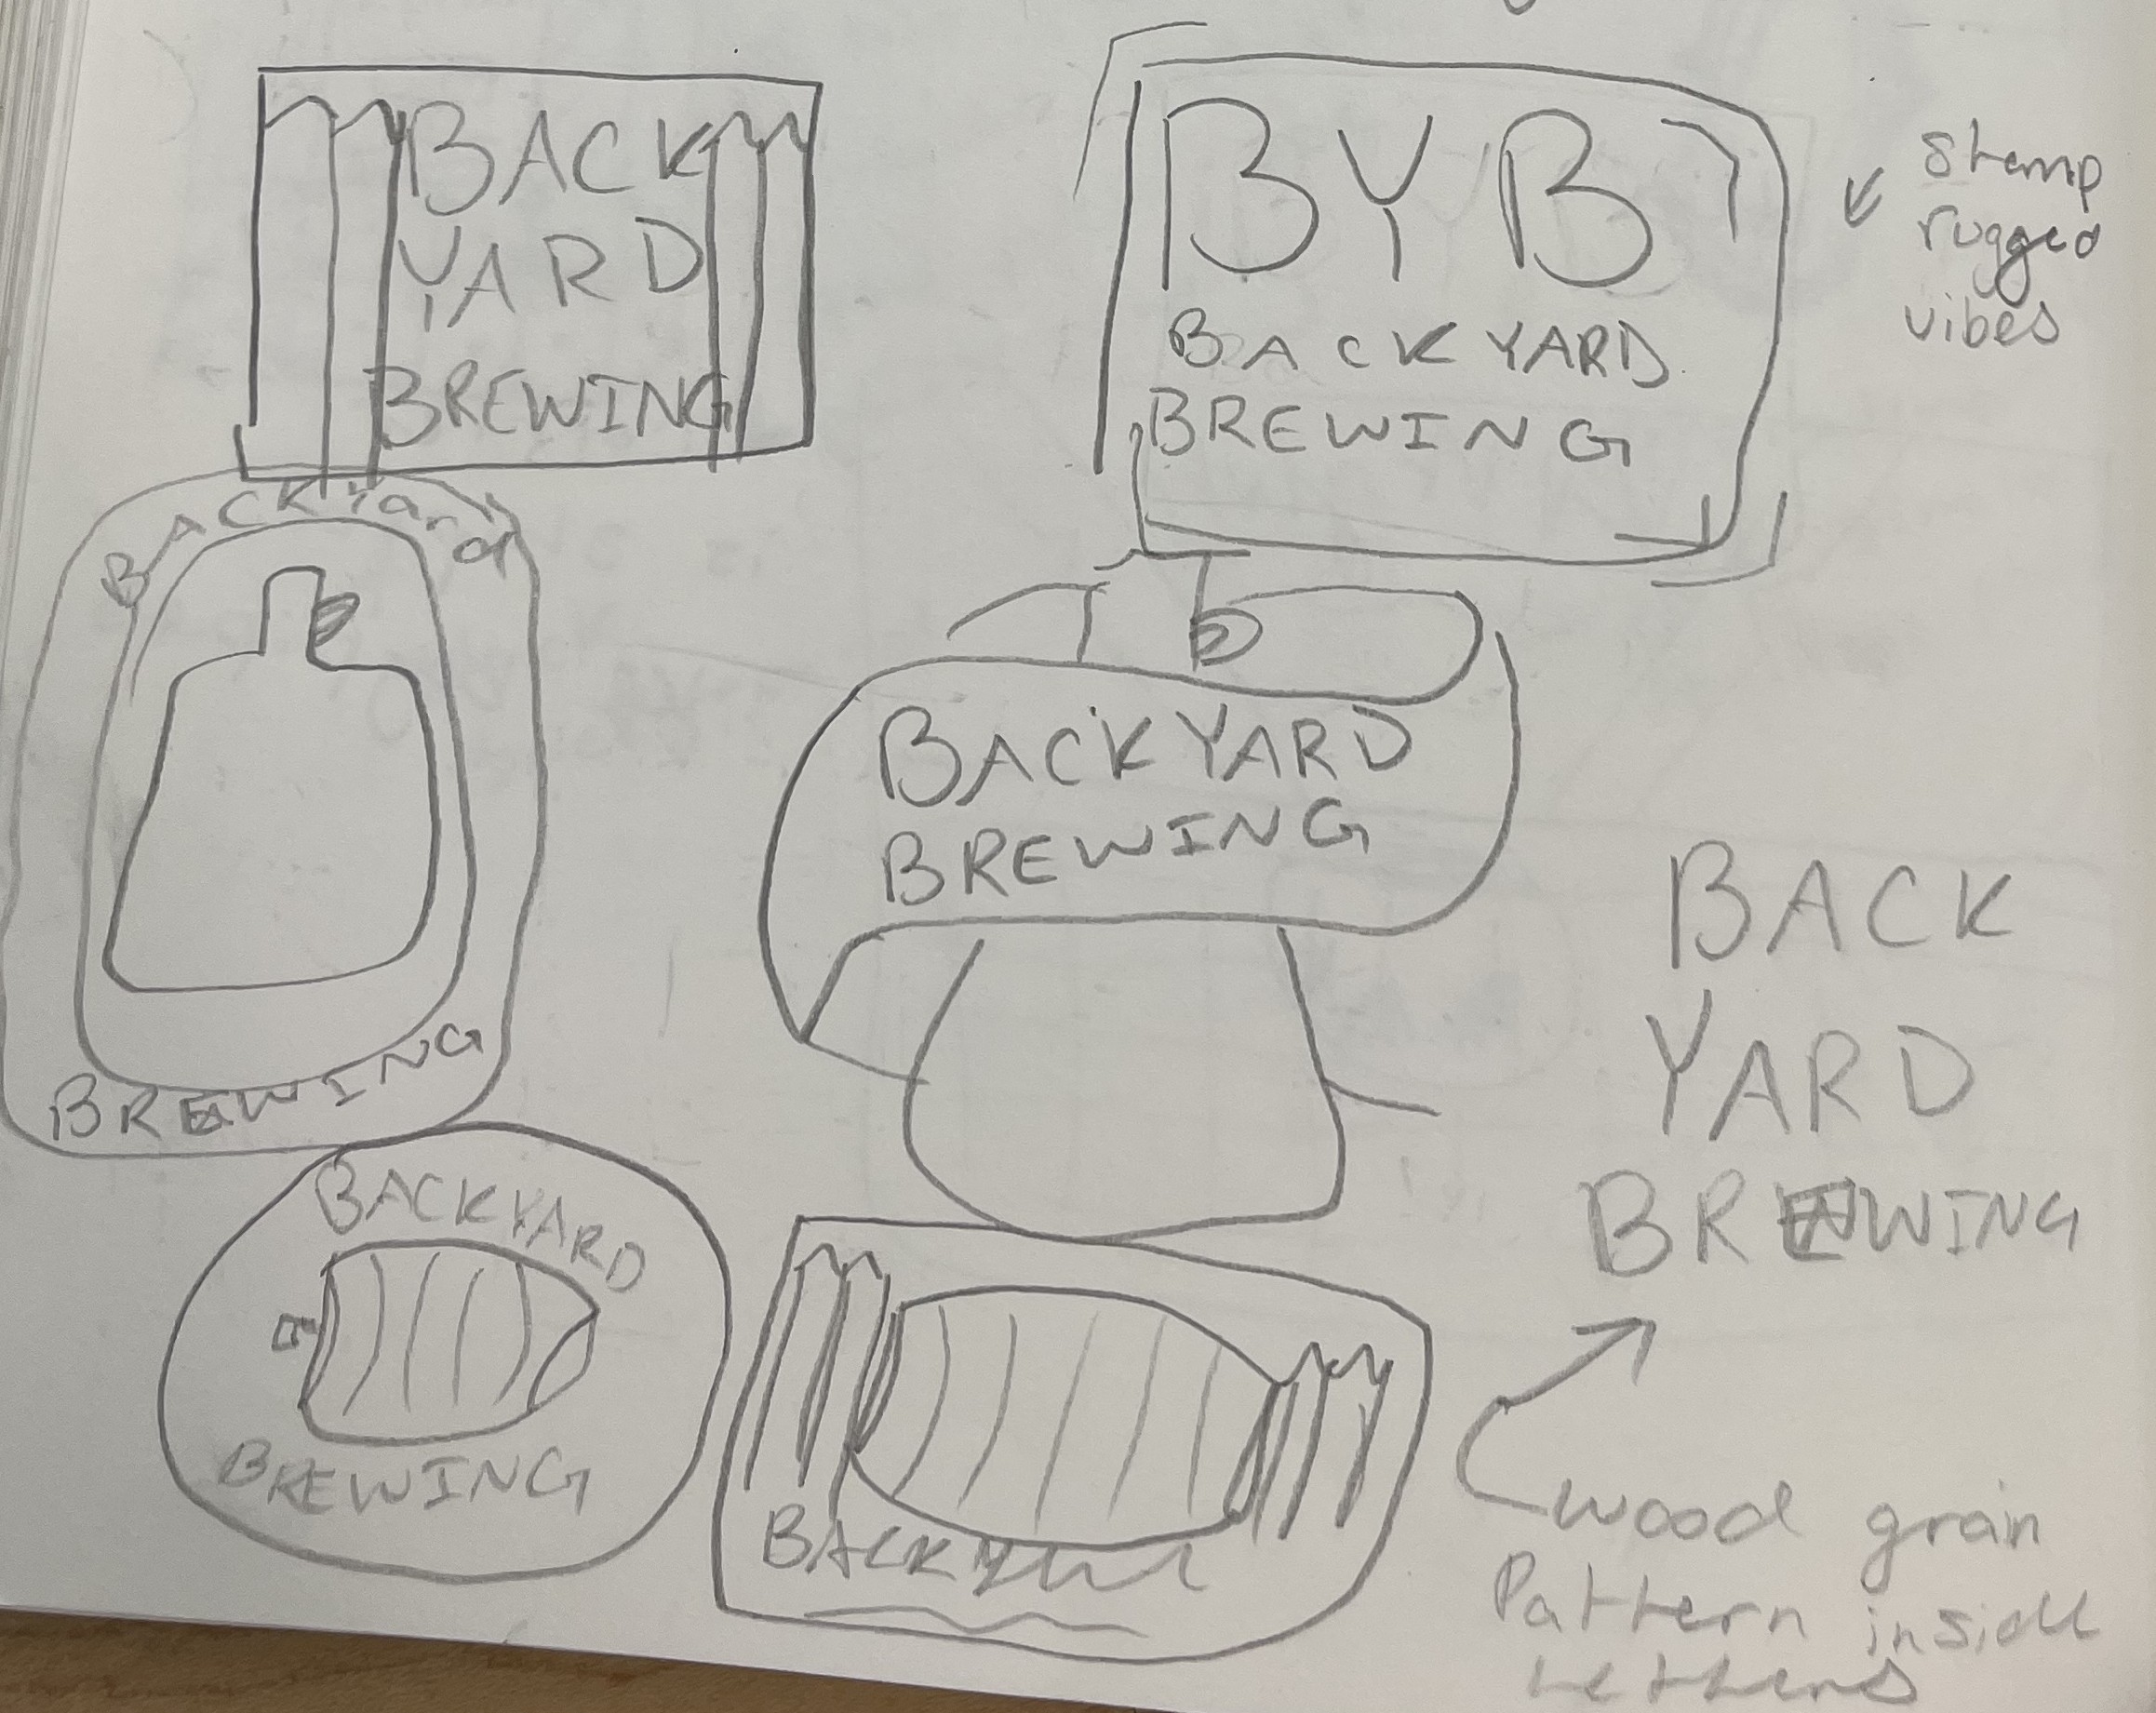 BACK
YARD
BREWING
BYB
BACKYARD
BREWING
stamp
rugged
vibes
BACKYard
BREWING
BACKYARD
BREWING
BACK
YARD
BREWING
BACKYARD
BREWING
BACK
wood grain
Pattern inside
letters